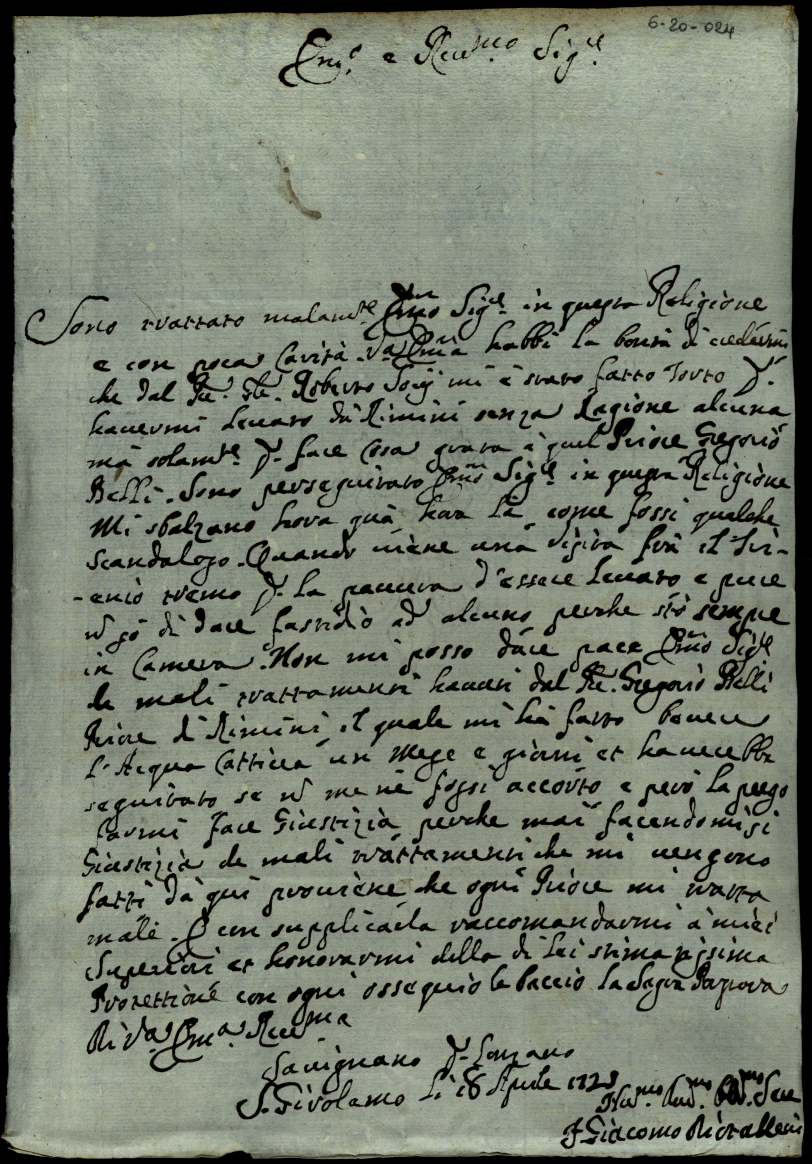 6-20-024
Em.o e Reu.mo Sig.e
Sono trattato malam.te Em.o Sig.e in questa Religione
e con poca Carità. V.a Em.a habbi la bontà di credermi
che dal Pre. Roberto mi è stato fatto Torto p.
hauermi leuato da Rimini senza Ragione alcuna
mà solam.te p. fare Cosa grata à quel Priore Gregorio
Belli. Sono perseguitato Em.o Sig.e in questa Religione
Mi sbalzano hora quà hora là come fossi qualche
scandaloso. Quando uiene una uisita frà il Tri-
-enio tremo p. la paura d'essere leuato e pure
nō sò di dare fastidio ad alcuno perche stò sempre
in Camera. Non mi posso dàre pace Em.o Sig.e
de mali trattamenti hauuti dal Pre. Gregorio Belli
Priore di Rimini, il quale mi hà fatto beuere
l'Acqua Cattiua un Mese e giorni et hauerebbe
seguitato se nō me nè fossi accorto e però la prego
farmi fare Giustizia perche mai facendomisi
Giustizia de mali trattamenti che mi uengono
fatti dà qui prouiene che ogni Priore mi tratta
male. E con supplicarla raccomandarmi à miei
Superiori et honorarmi della di lei stimatissima
Protettione con ogni ossequio le baccio la Sagra Porpora
Di V.a Em.a Reu.ma
Sauignano p. Lonzano
S. Girolamo li 18 Aprile 1723
Hu.mo Diu.mo Obb.mo Seru
F. Giacomo